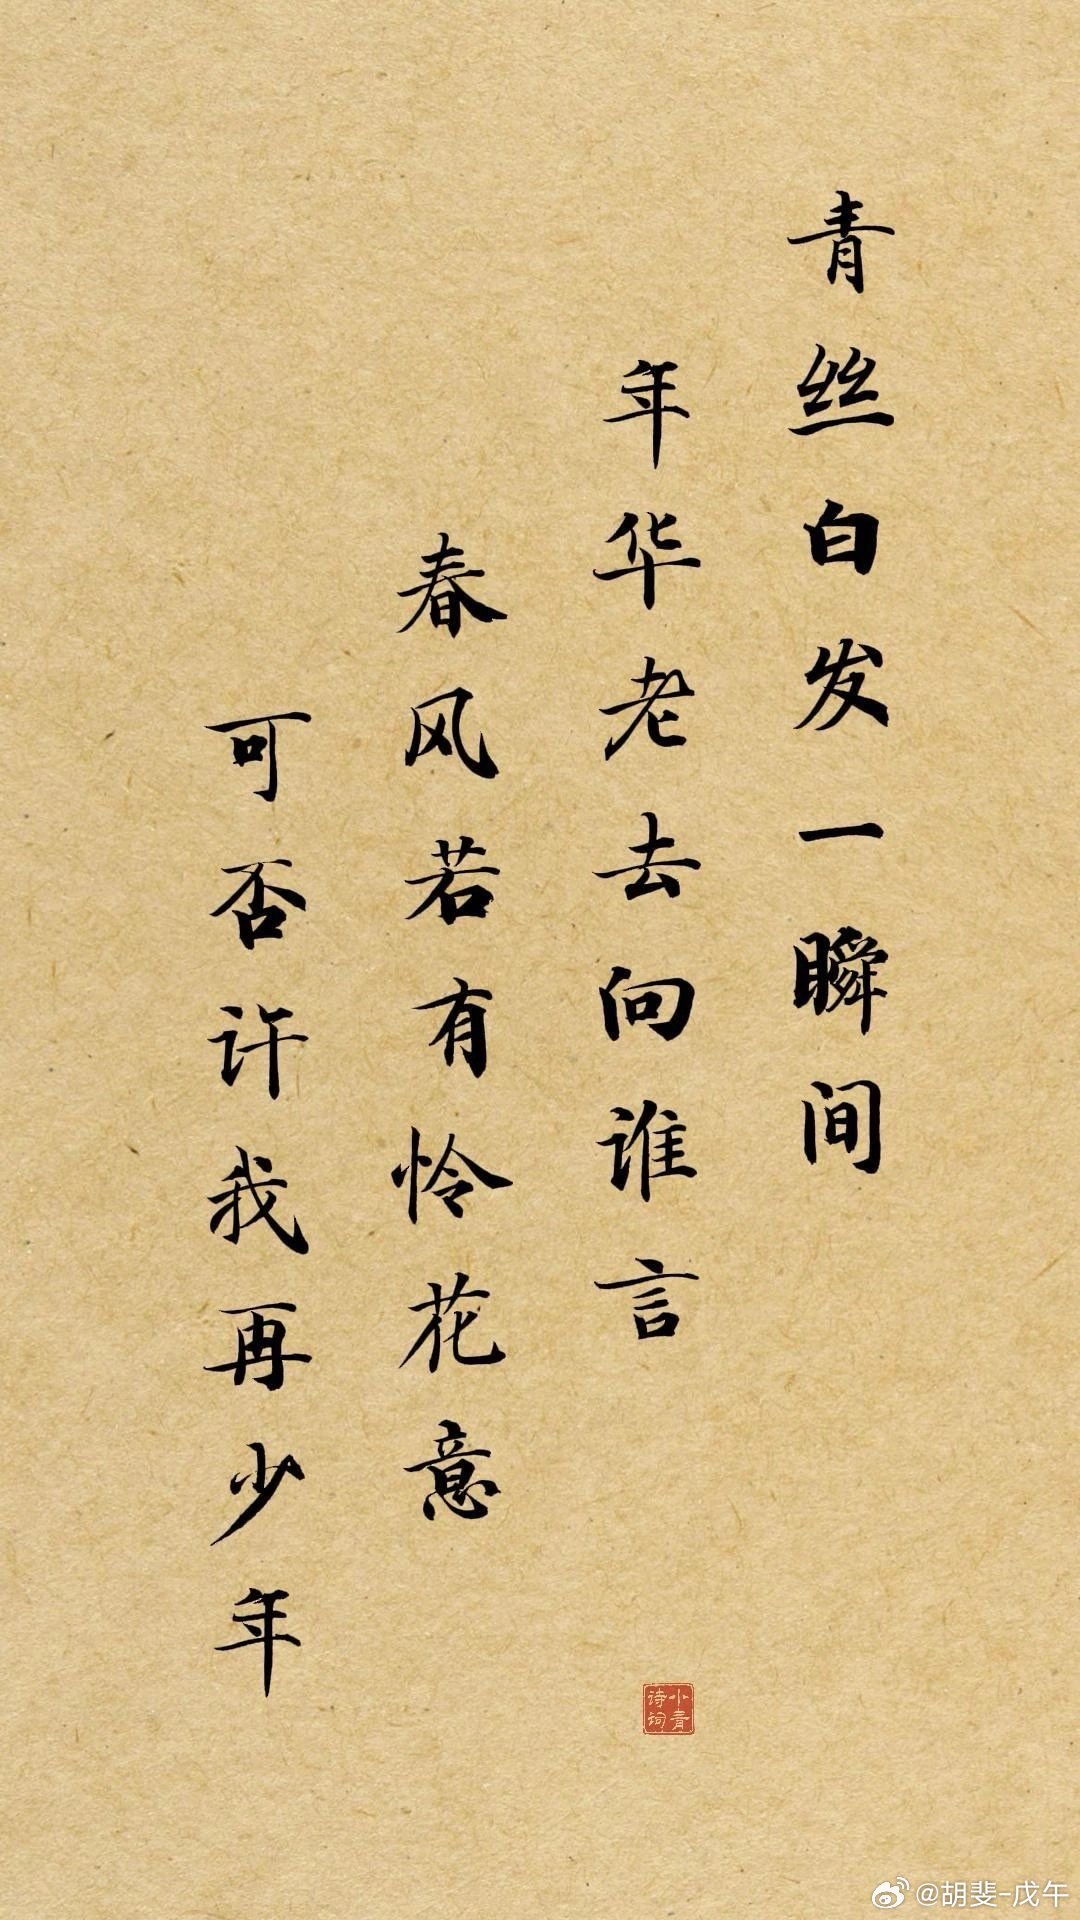 青丝白发一瞬间
年华老去向谁言
春风若有怜花意
可否许我再少年
小青
诗词
@胡斐-戊午